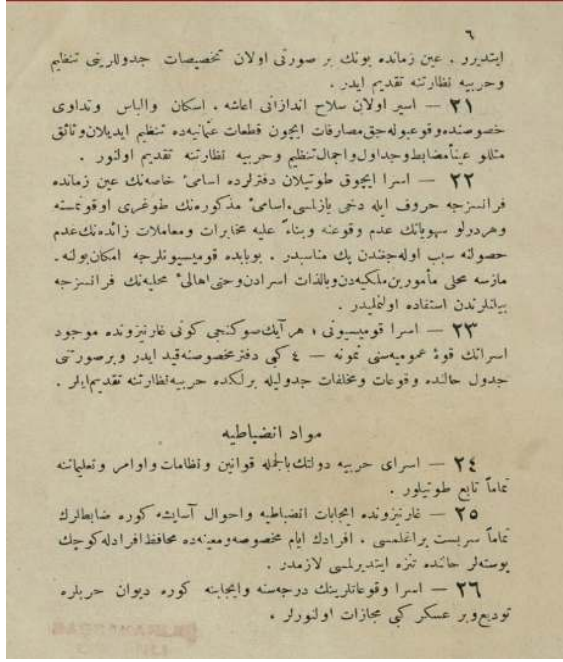 ٦
ایتدیرر . عین زمانده بونك بر صورتی اولان تخصیصات جدوللرینی تنظیم
وحربیه نظارتنه تقدیم ایدر .
٢١ — اسیر اولان سلاح اندازانی اعاشه ، اسکان والباس وتداوی
خصوصنده وقوعبوله جق مصارفات ایچون قطعات عثمانیه ده تنظیم ایدیلان وثائق
مثللو عیناً مضابط وجداول واجمال تنظیم وحربیه نظارتنه تقدیم اولنور .
٢٢ — اسرا ایچوق طوتیلان دفترلرده اسامیٔ خاصه نك عین زمانده
فرانسزجه حروف ایله دخی یازلمسی، اسامیٔ مذکوره نك طوغری اوقونمسنه
وهردرلو سهویاتك عدم وقوعنه وبناءً علیه مخابرات ومعاملات زائده نك عدم
حصولنه سبب اوله جغندن پك مناسبدر . بوبابده قومیسیونلرجه امکان بولنه ـ
مازسه محلی مأمورین ملکیه دن وبالذات اسرادن وحتی اهالیٔ محلیه نك فرانسزجه
بیلنلرندن استفاده اولنملیدر .
٢٣ — اسرا قومیسیونی ، هر آیك صوکنجی کونی غارنیزونده موجود
اسرانك قوهٔ عمومیه سنی نمونه — ٤ کبی دفتر مخصوصنه قید ایدر وبر صورتنی
جدول حالنده وقوعات ومخلفات جدولیله برلکده حربیه نظارتنه تقدیم ایلر .
مواد انضباطیه
٢٤ — اسرای حربیه دولتك بالجمله قوانین ونظامات واوامر وتعلیماتنه
تماماً تابع طوتیلور .
٢٥ — غارنیزونده ایجابات انضباطیه واحوال آسایشه کوره ضابطلرك
تماماً سربست براغلمسی ، افرادك ایام مخصوصه ومعینه ده محافظ افرادله کوچك
پوسته لر حالنده تنزه ایتدیرلمسی لازمدر .
٢٦ — اسرا وقوعاتلرینك درجه سنه وایجابنه کوره دیوان حربلره
تودیع وبر عسکر کبی مجازات اولنورلر .